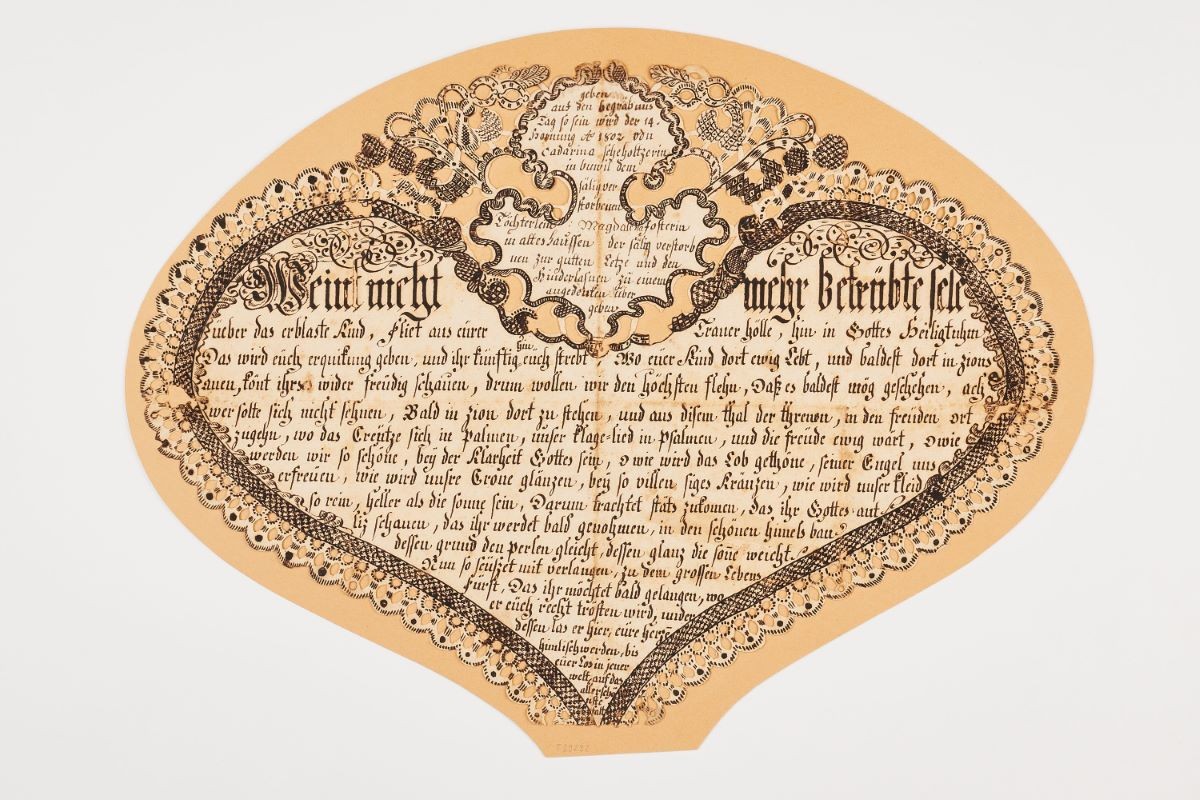 geben
auf den begräbnus
Tag so sein wird der 14.
Hornung Aº 1802 von
Cadarina scheholtzerin
in buwil dem
sälig ver
storbenen
Töchterlein Magdalena Josterin
in altes haussen der sälig verstorb
nen zur gutten Letze und den
Hinderlasnen zu einem
angedencken über
geben
Wein nicht mehr Betrübte sele
ueber das erblaste Kind, fliet aus eürer Trauer hölle, hin in Gottes Heiligtuhm
hin
Das wird eüch erquikung geben, und ihr künftig eüch strebt, Wo euer Kind dort ewig Lebt, und baldest dort in zions
auen, könt ihrs wider freüdig schauen, drum wollen wir den höchsten flehn, Daß es baldest mög geschehen, ach
wer solte sich nicht sehnen, Bald in zion dort zu stehen, und aus disem thal der threnen, in den freüden ort
zugehn, wo das Creütze sich in Palmen, unser klage-lied in Psalmen, und die freüde ewig wärt, o wie
werden wir so schöne, bey der Klarheit Gottes sein, o wie wird das Lob gethöne, seiner Engel uns
erfreuen, wie wird unsre Crone glänzen, beÿ so villen siges Kränzen, wie wird unser kleid
so rein, heller als die sonne sein, Darum trachtet stäts zukomen, das ihr Gottes ant
liz schauen, das ihr werdet bald genohmen, in den schönen himels bau
dessen grund den perlen gleicht, dessen glanz die soñe weicht
Nun so seüfzet mit verlangen, zu dem grossen Lebens
fürst, Das ihr möchtet bald gelangen, wo
er eüch recht trösten wird, under
dessen las er hier, eüre herze
himlisch werden, bis
eüer Los in jener
welt, auf das
aller schön
ste
T 29292